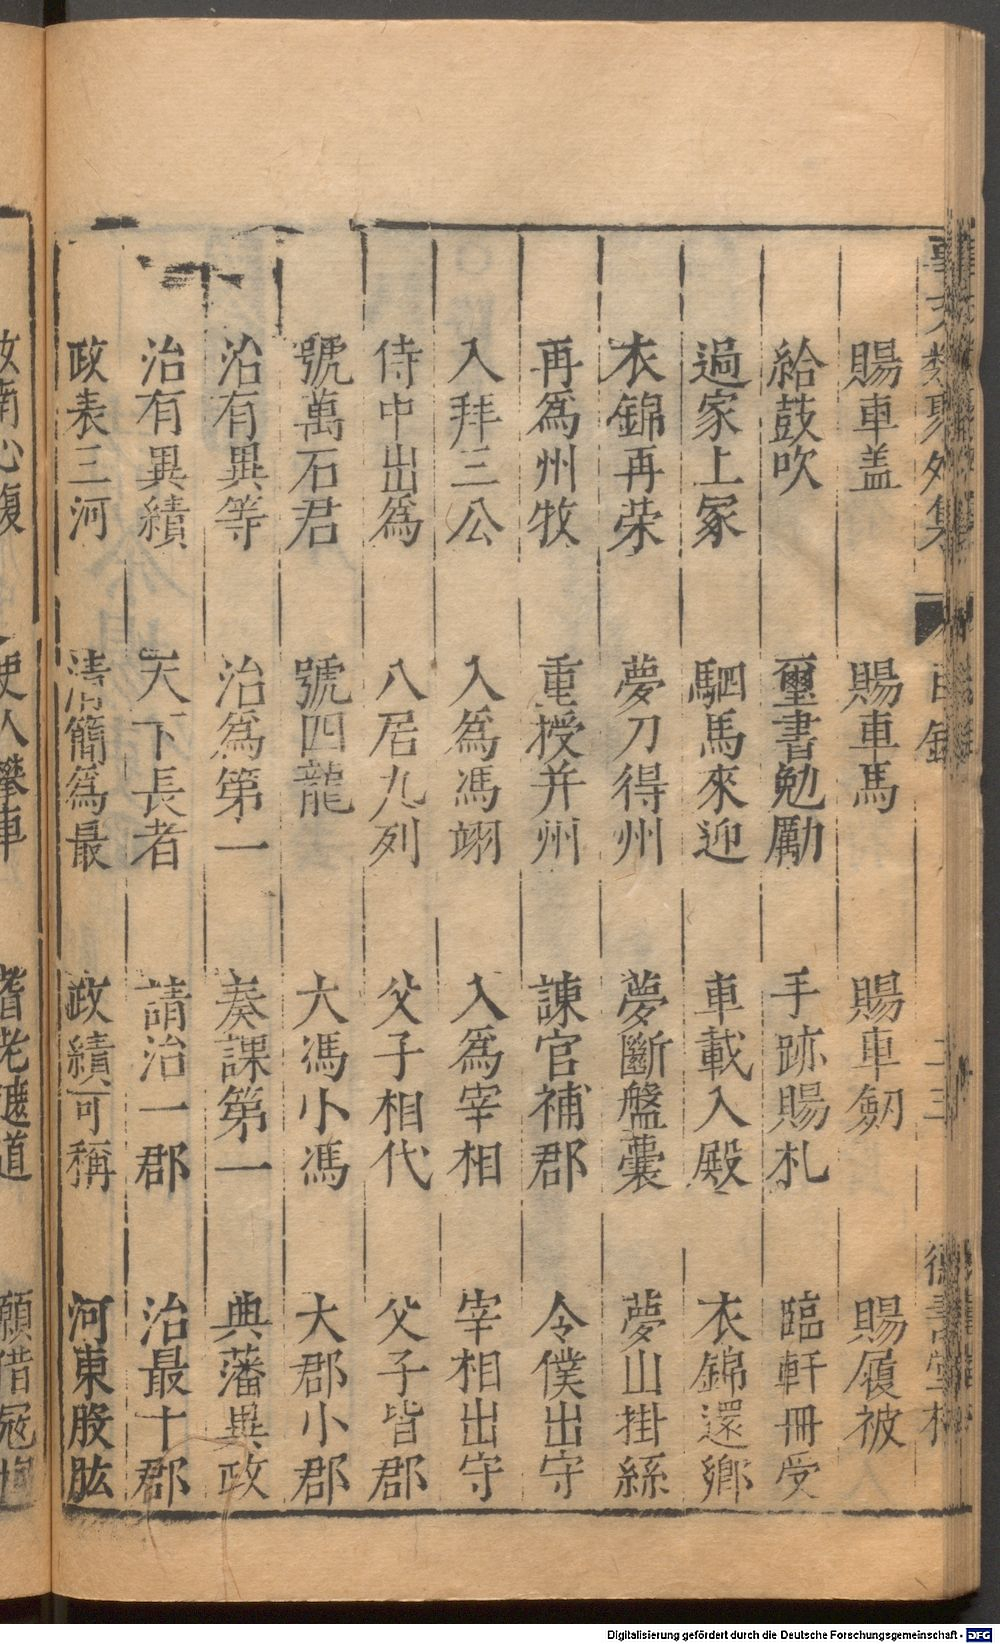 賜車盖 賜車馬 賜車劒 賜履被
給鼓吹 璽書勉勵 手跡賜札 臨軒冊受
過家上冢 駟馬來迎 車載入殿 衣錦還鄉
衣錦再荣 夢刀得州 夢斷盤囊 夢山掛絲
再爲州牧 重授并州 諌官補郡 令僕出守
入拜三公 入爲馮翊 入爲宰相 宰相出守
侍中出爲 八居九列 父子相代 父子皆郡
號萬石君 號四龍 大馮小馮 大郡小郡
治有異等 治爲第一 奏課第一 典藩異政
治有異績 天下長者 請治一郡 治最十郡
政表三河 清簡爲最 政績可稱 河東股肱
汝南心腹 吏人攀車 耆老遮道 願借冦恂
Digitalisierung gefördert durch die Deutsche Forschungsgemeinschaft - DFG